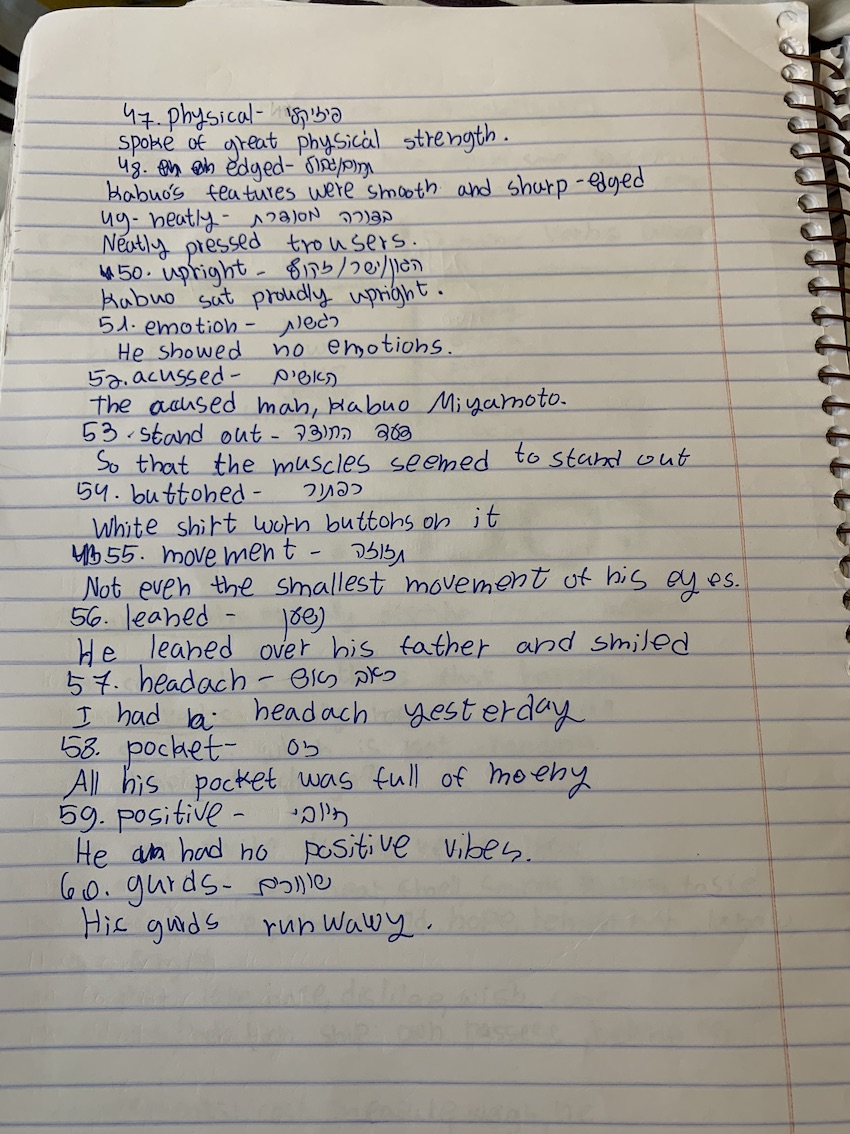 47. physical- פיזיקלי
spoke of great physical strength.
48. edged-
kabuo's features were smooth and sharp-edged
49- neatly- בצורה מסודרת
Neatly pressed trousers.
50. upright - הגון/ישר/זקוף
Kabuo sat proudly upright.
51. emotion- רגשות
He showed no emotions.
52. acussed- האשים
the acused man, kabuo Miyamoto.
53. stand out- החוצה
So that the muscles seemed to stand out
54. buttoned- כפתור
White shirt worn buttons on it
55. movement - תזוזה
Not even the smallest movement of his eyes.
56. leaned - נשען
He leaned over his father and smiled
57. headach- כאב ראש
I had a headach yesterday
58. pocket- כיס
All his pocket was full of moeny
59. positive- חיובי
He had no positive vibes.
60. gurds- שומרים
His gurds run wawy.